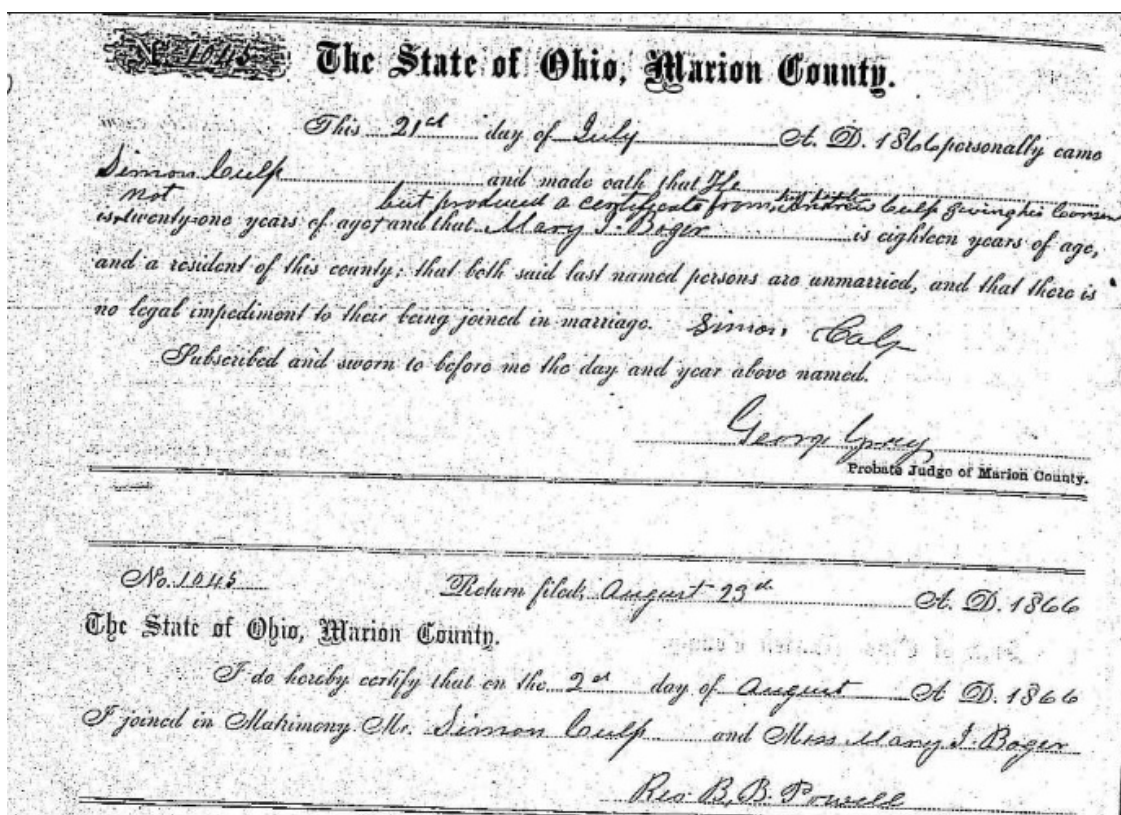 No. 1045
The State of Ohio, Marion County.
This 21st day of July A. D. 1866 personally came
Simon Culp and made oath that He
not but produced a certificate from Culp giving his consent
is twenty-one years of age, and that Mary J. Boger is eighteen years of age,
and a resident of this county; that both said last named persons are unmarried, and that there is
no legal impediment to their being joined in marriage. Simon Culp
Subscribed and sworn to before me the day and year above named.
George Gray
Probate Judge of Marion County.
No. 1045 Return filed, August 23rd A. D. 1866
The State of Ohio, Marion County.
I do hereby certify that on the 2nd day of August A. D. 1866
I joined in Matrimony Mr. Simon Culp and Miss Mary J. Boger
Rev B. B. Powell